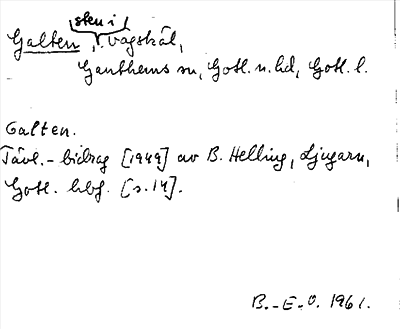 sten i
Galten, i vägskäl,
Ganthems sn, Gotl. n. hd, Gotl. l.
Galten.
Tävl.-bidrag [1949] av B. Helling, Ljugarn,
Gotl. hbf. [s. 14].
B.-E.O. 1961.